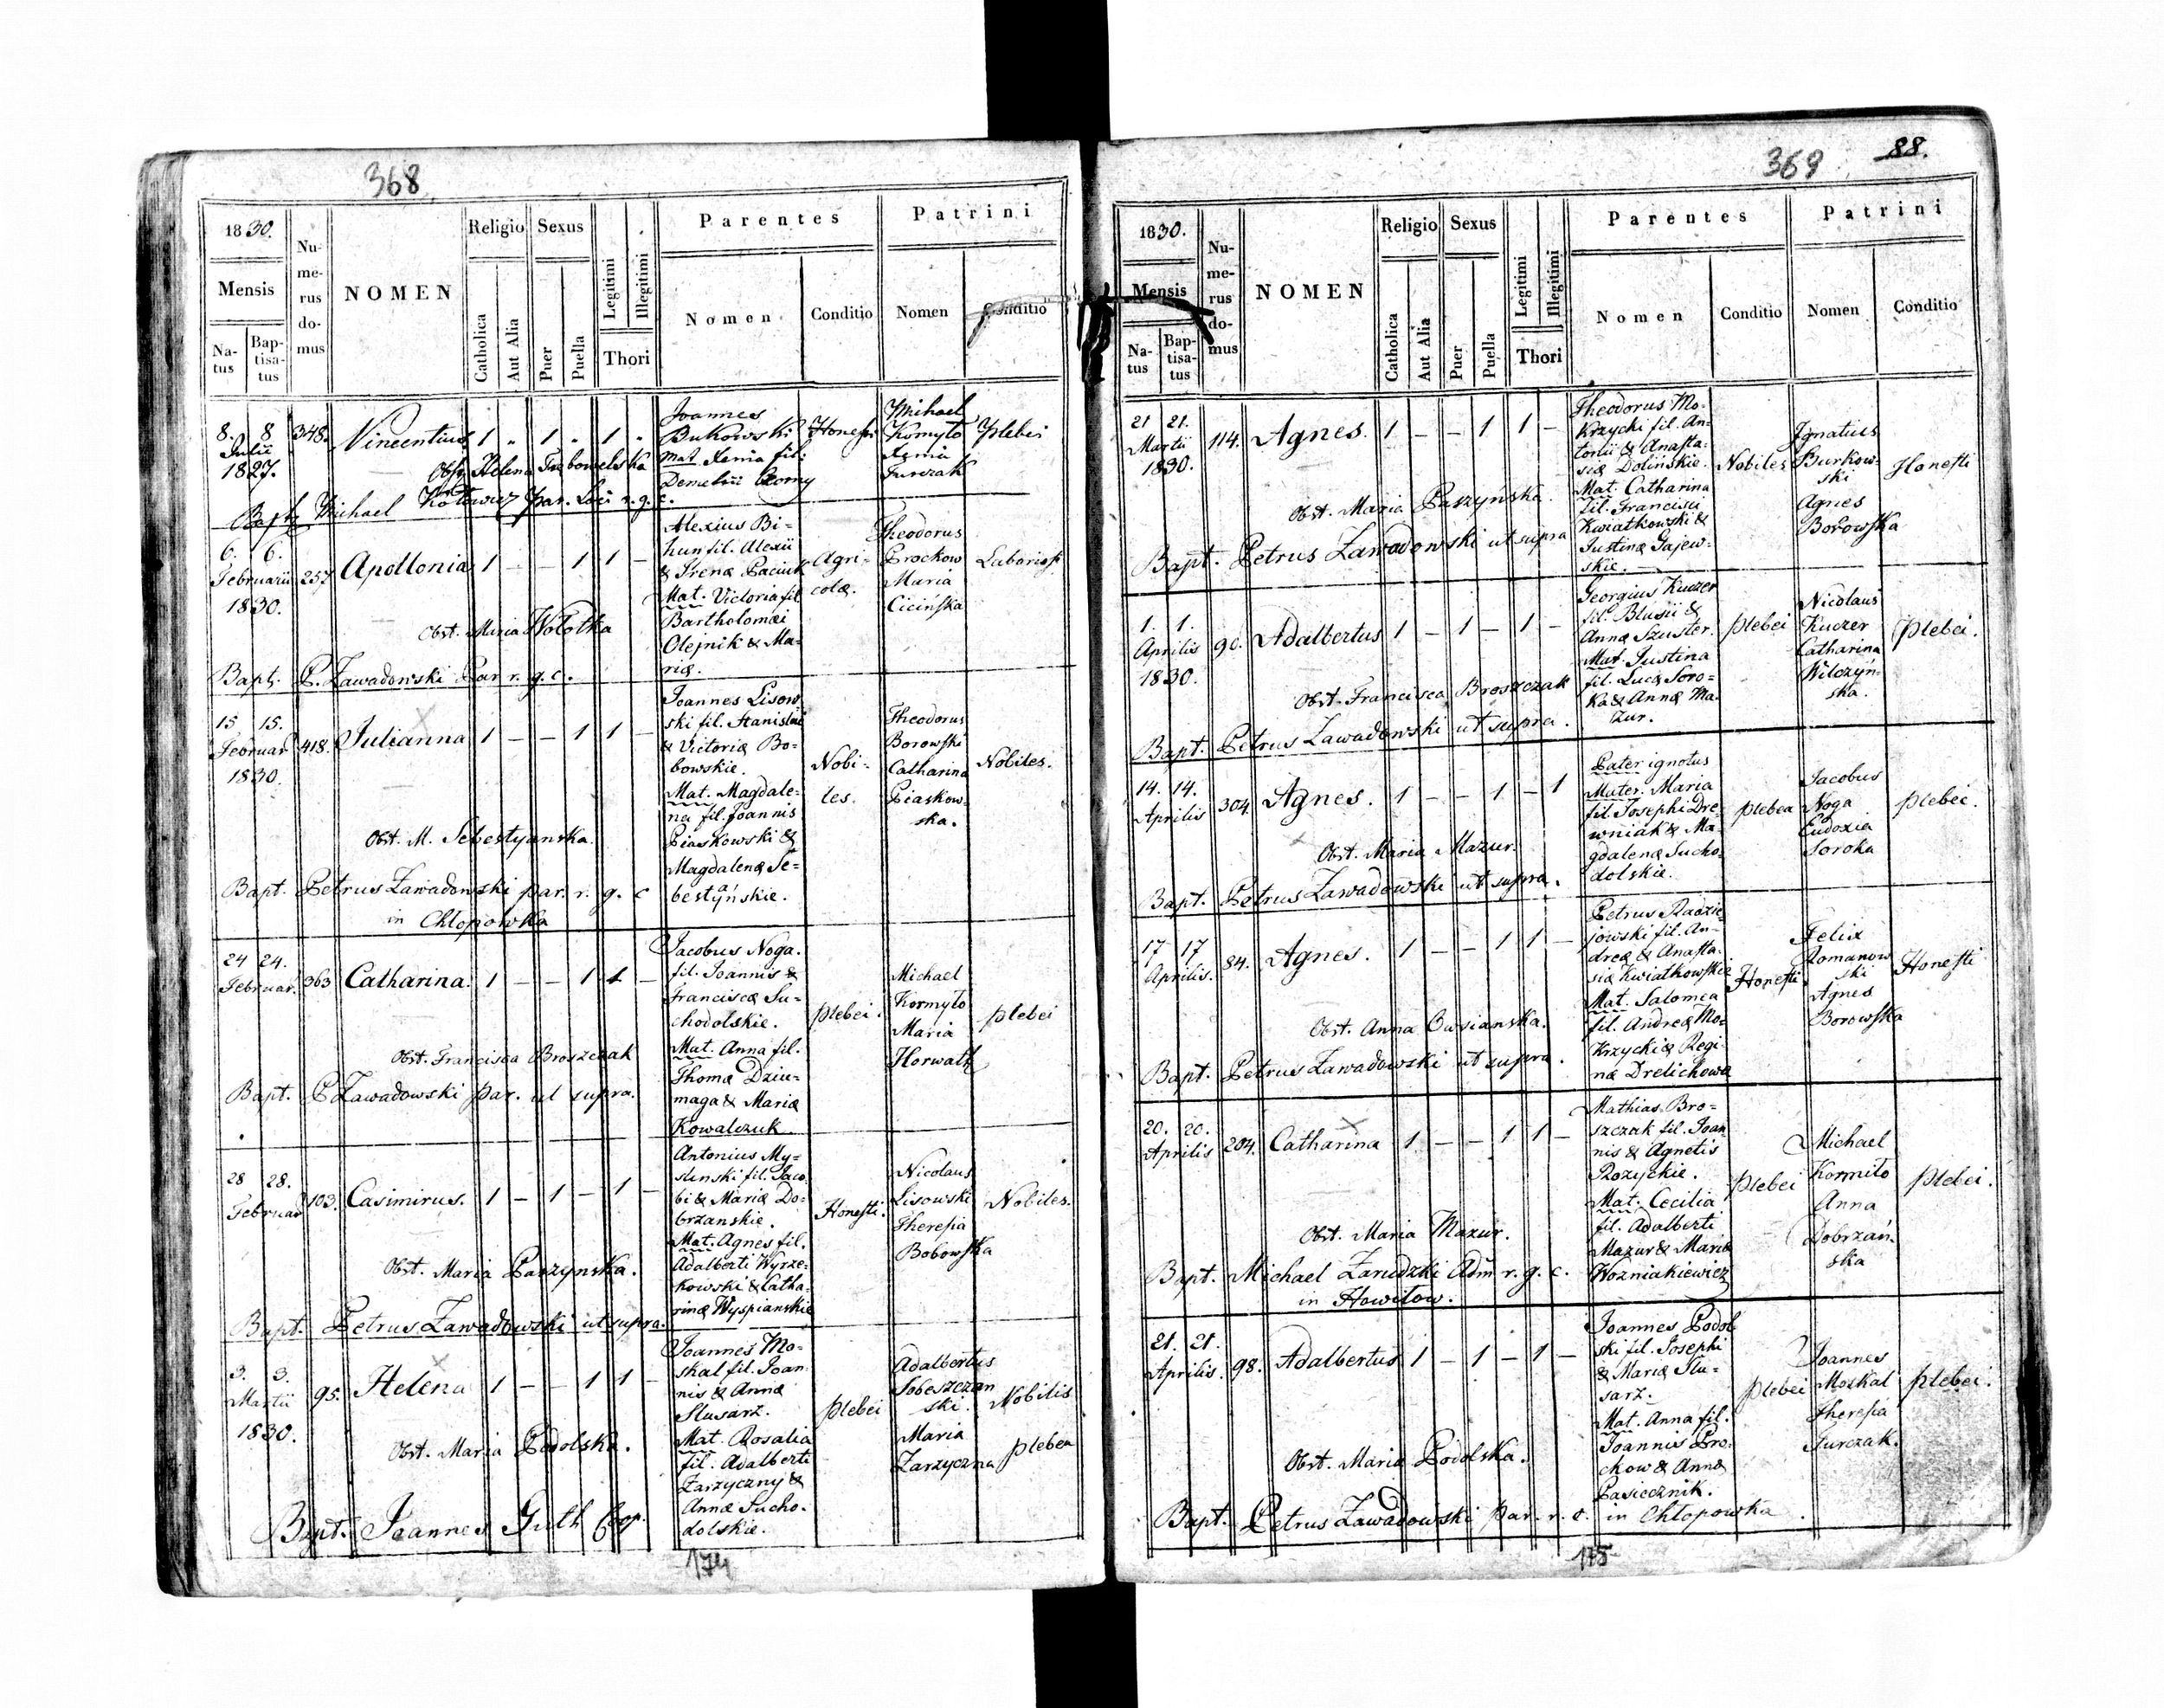 368
1830.
Mensis
Na-
tus
Bap-
tisa-
tus
Nu-
me-
rus
do-
mus
NOMEN
Religio
Catholica
Aut Alia
Sexus
Puer
Puella
Legitimi
Illegitimi
Thori
Parentes
Nomen
Conditio
Patrini
Nomen
Conditio
8. 8 348. Vincentius 1 „ 1 „ 1 „
Julii
1827.
Joannes
Bukowski
Mat Xenia fil:
Demetrii
Honesti
Michael
Komyło
Xenia
Jurczak
Plebei
Obst. Helena Trębowelska
Bapt. Michael Kotowicz Par. Loci r. g. c.
6. 6. 257 Apollonia 1 — — 1 1 —
Februarii
1830.
Alexius Bi-
hun fil. Alexii
& Irenæ Paciuk
Mat. Victoria fil
Bartholomæi
Olejnik & Ma-
riæ.
Agri-
colæ.
Theodorus
Prockow
Maria
Cicińska
Laboriosi
Obst. Maria Wołotka
Bapt. P. Zawadowski Par r. g. c.
15 15. 418. Julianna 1 — — 1 1 —
Februar
1830.
Joannes Lisow
ski fil. Stanislai
& Victoriæ Bo-
bowskie.
Mat. Magdale-
na fil. Joannis
Piaskowski &
Magdalenæ Se-
bestyańskie.
Nobi-
les.
Theodorus
Borowski
Catharina
Piaskow-
ska.
Nobiles.
Obst. M. Sebestyanska.
Bapt. Petrus Zawadowski par. r. g. c
in Chłopowka
24 24. 363 Catharina. 1 — — 1 1 —
Februar.
Jacobus Noga.
fil. Joannis &
Franciscæ Su-
chodolskie.
Mat. Anna fil.
Thomæ Dziu-
maga & Mariæ
Kowalczuk.
plebei.
Michael
Kormyło
Maria
Horwath
plebei
Obst. Francisca Broszczak
Bapt. P Zawadowski Par. ut supra.
28 28. 103. Casimirus. 1 — 1 — 1 —
Februar
Antonius My-
slinski fil. Jaco
bi & Mariæ Do-
brzanskie.
Mat. Agnes fil.
Adalberti Wyrze-
kowski & Catha-
rinæ Wyspianskie
Honesti.
Nicolaus
Lisowski
Theresia
Bobowska
Nobiles.
Obst. Maria Paszynska.
Bapt. Petrus Zawadowski ut supra.
3. 3. 95. Helena 1 — — 1 1 —
Martii
1830.
Joannes Mo-
skal fil. Joan
nis & Annæ
Slusarz.
Mat. Rosalia
fil. Adalberti
Zarzyczny &
Annæ Sucho-
dolskie.
plebei
Adalbertus
Sobeszczan
ski.
Maria
Zarzyczna
Nobilis
plebea
Obst. Maria Podolska.
Bapt. Joannes Guth Coop.
174
369 88.
1830.
Mensis
Na-
tus
Bap-
tisa-
tus
Nu-
me-
rus
do-
mus
NOMEN
Religio
Catholica
Aut Alia
Sexus
Puer
Puella
Legitimi
Illegitimi
Thori
Parentes
Nomen
Conditio
Patrini
Nomen
Conditio
21 21. 114. Agnes. 1 — — 1 1 —
Martii
1830.
Theodorus Mo-
krzycki fil. An-
tonii & Anasta-
siæ Dolińskie.
Mat. Catharina
fil. Francisci
Kwiatkowski &
Justinæ Gajew-
skie.
Nobiles
Ignatius
Burkow-
ski
Agnes
Borowska
Honesti
Obst. Maria Paszyńska.
Bapt. Petrus Zawadowski ut supra
1. 1. 90. Adalbertus 1 — 1 — 1 —
Aprilis
1830.
Georgius Kuczer
fil. Blasii &
Annæ Szuster.
Mat. Justina
fil. Lucæ Soro-
ka & Annæ Ma-
zur.
plebei
Nicolaus
Kuczer
Catharina
Wilczyń-
ska.
plebei.
Obst. Francisca Broszczak
Bapt. Petrus Zawadowski ut supra.
14. 14. 304. Agnes. 1 — — 1 — 1
Aprilis
Pater ignotus
Mater. Maria
fil. Josephi Dre-
wniak & Ma-
gdalenæ Sucho-
dolskie.
plebea
Jacobus
Noga
Eudoxia
Soroka
plebei.
Obst. Maria Mazur.
Bapt. Petrus Zawadowski ut supra.
17 17 84. Agnes. 1 — — 1 1 —
Aprilis.
Petrus Radzie-
jowski fil. An-
dreæ & Anasta-
siæ Kwiatkowskie
Mat. Salomea
fil. Andreæ Mo-
krzycki & Regi-
næ Drelichowa
Honesti
Felix
Romanow
ski
Agnes
Borowska
Honesti
Obst. Anna Owsianska.
Bapt. Petrus Zawadowski ut supra.
20. 20. 204. Catharina 1 — — 1 1 —
Aprilis
Mathias Bro-
szczak fil. Joan
nis & Agnetis
Rozyckie.
Mat. Cecilia
fil. Adalberti
Mazur & Mariæ
Wozniakiewicz
plebei
Michael
Kormiło
Anna
Dobrzań-
ska
plebei.
Obst. Maria Mazur.
Bapt. Michael Zarudzki Adm r. g. c.
in Howiłow.
21. 21. 98. Adalbertus 1 — 1 — 1 —
Aprilis.
Joannes Podol
ski fil. Josephi
& Mariæ Slu-
sarz.
Mat. Anna fil.
Joannis Pro-
chow & Annæ
Pasiecznik.
plebei
Joannes
Moskal
Theresia
Jurczak.
plebei.
Obst. Maria Podolska.
Bapt. Petrus Zawadowski par. r. c. in Chłopowka
175